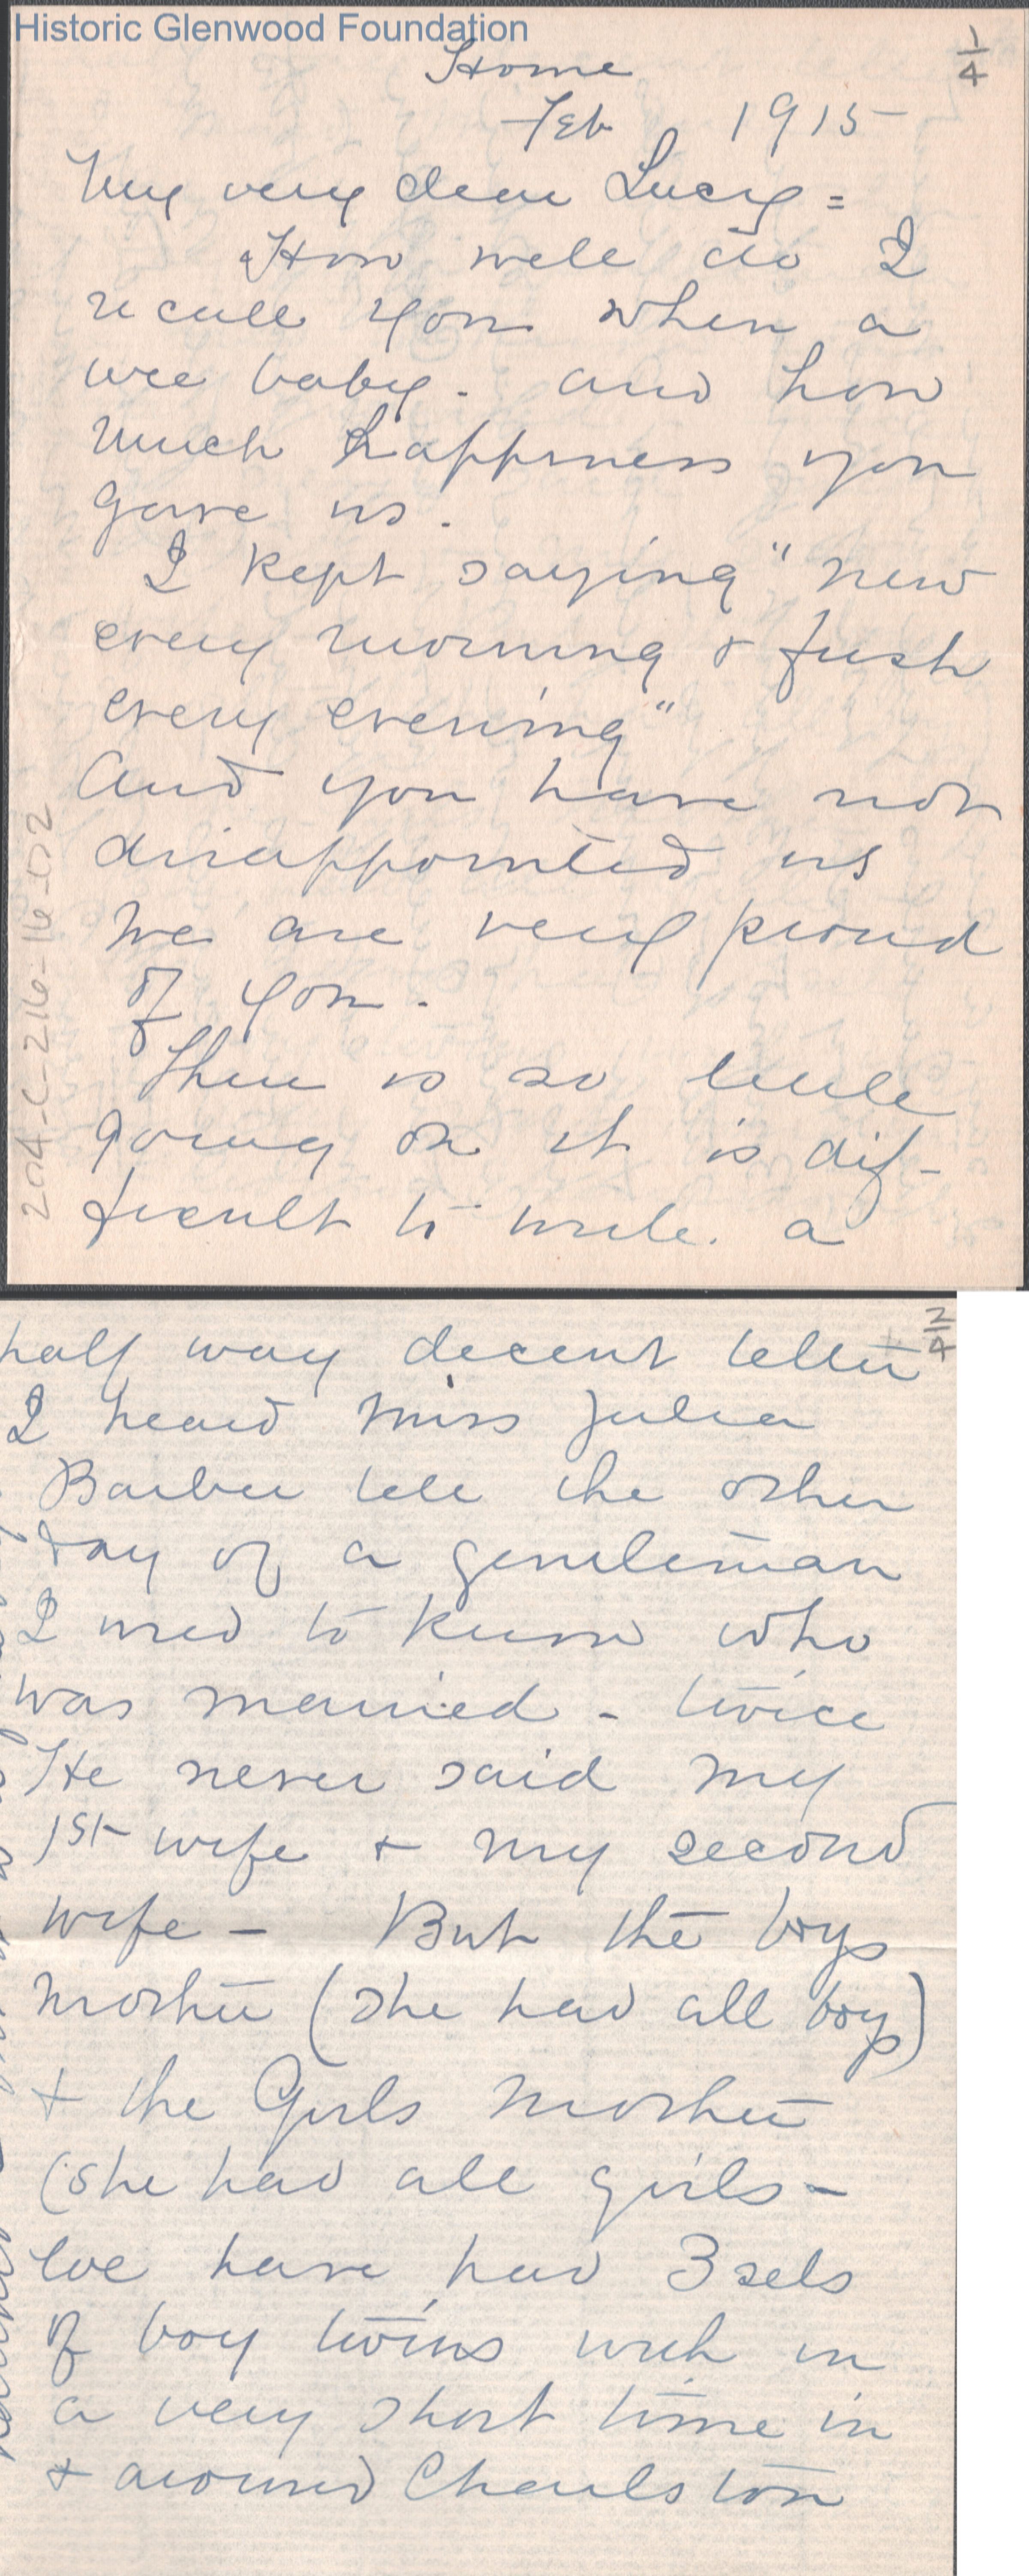 Historic Glenwood Foundation
1/4
Home
Feb 1915
My very dear Lucy =
How well do I
recall you when a
wee baby - and how
much happiness you
gave us.
I kept saying "new
every morning & fresh
every evening"
And you have not
disappointed us
We are very proud
of you.
There is so little
going on it is dif-
ficult to write. a
204-C-216-16-02
2/4
half way decent letter
I heard Miss Julia
Barber tell the other
day of a gentleman
I used to know who
was married - twice
He never said my
1st wife & my second
wife - But the boys
mother (she had all boys)
& the Girls mother
(she had all girls -
We have had 3 sets
of boy twins with in
a very short time in
& around Charlston